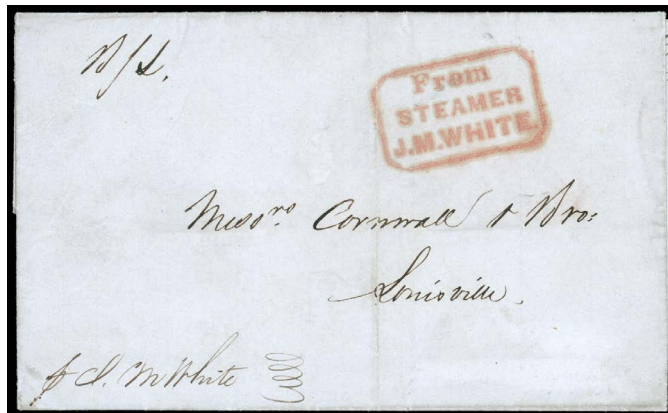 B/L.
From
STEAMER
J.M.WHITE.
Messrs. Cornwall & Bro:
Louisville.
p J. M White